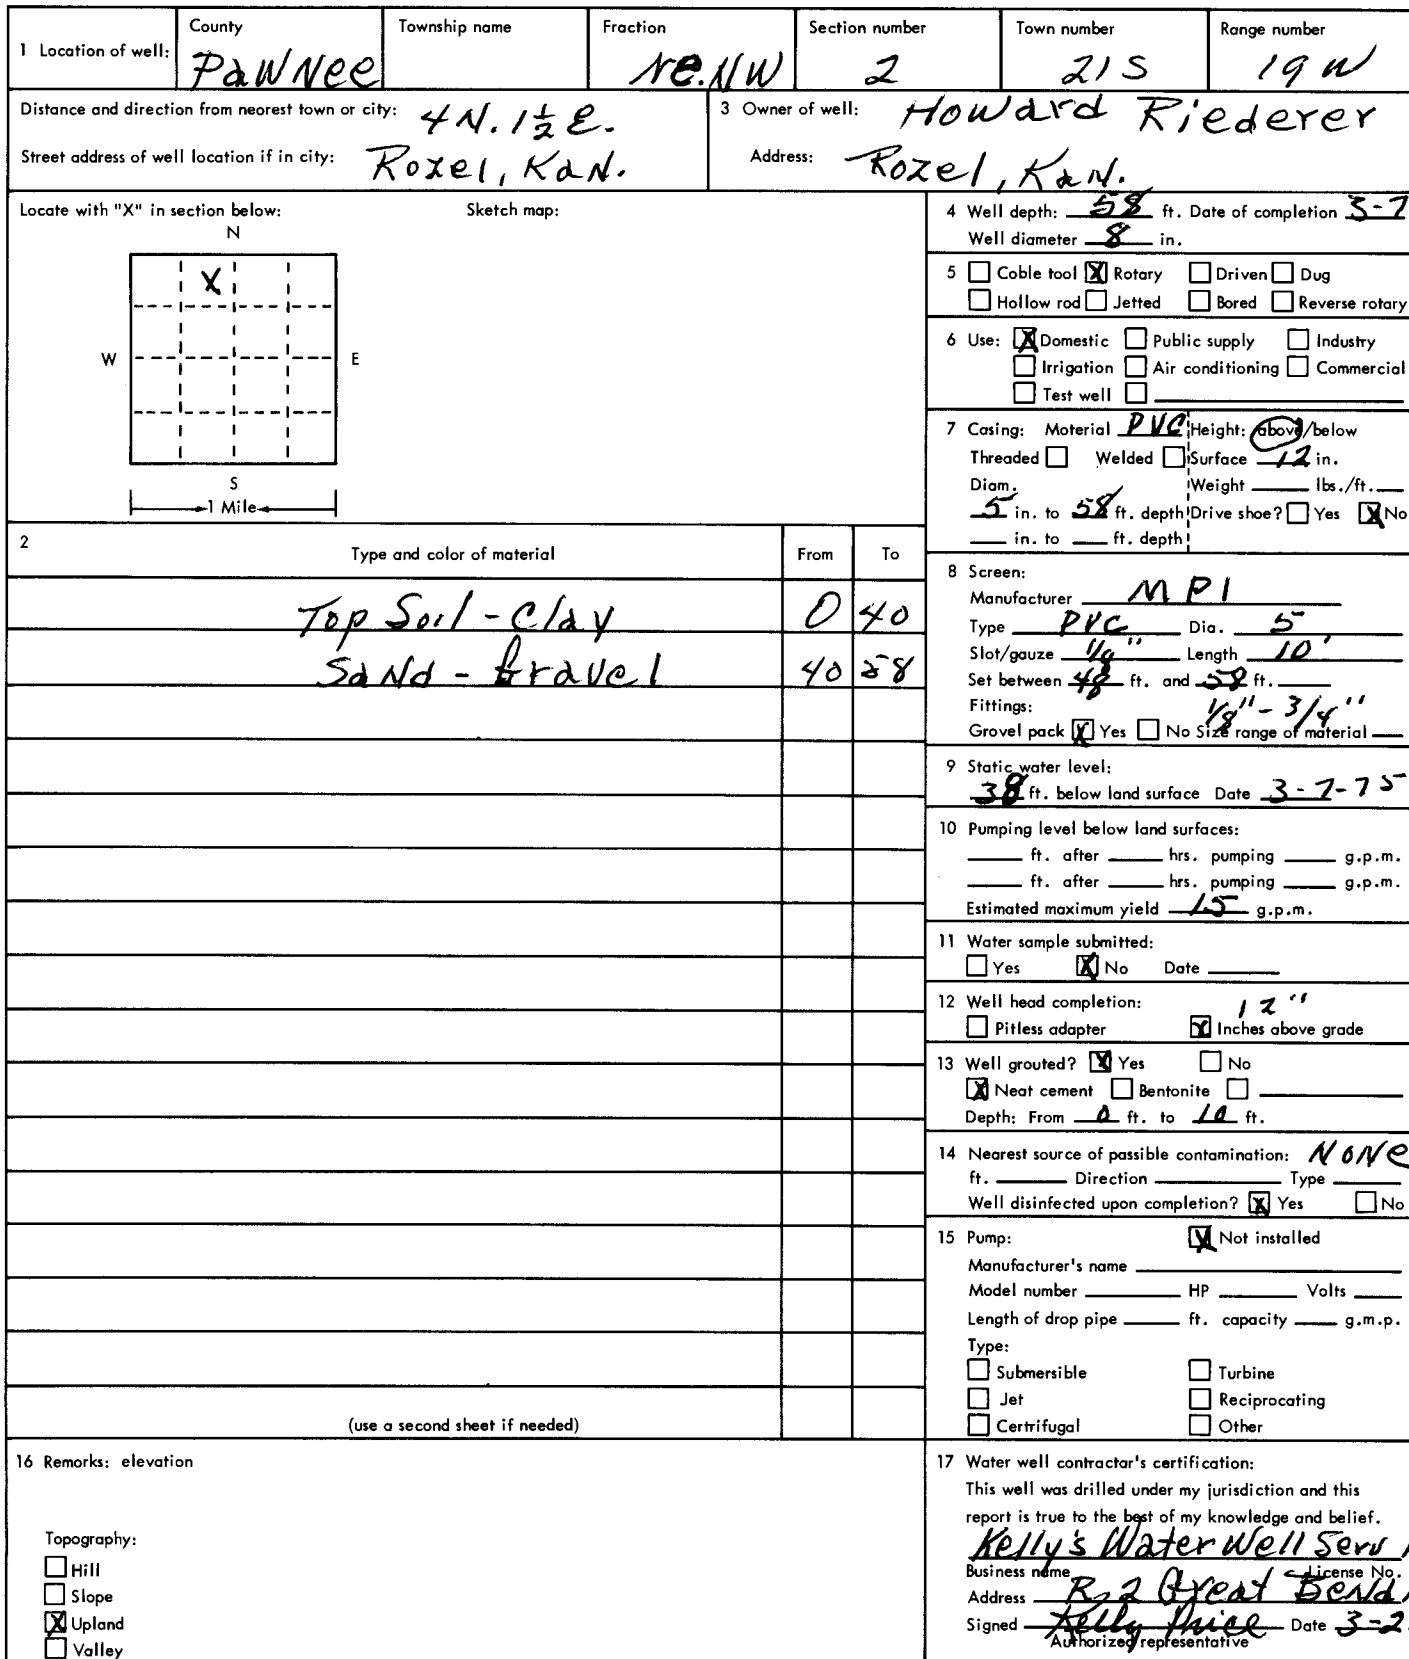 1 Location of well:
County
PaWNee
Township name
Fraction
Ne.NW
Section number
2
Town number
21S
Range number
19W
Distance and direction from neorest town or city: 4 N. 1 1/2 E.
Street address of well location if in city: Rozel, KaN.
3 Owner of well: Howard Riederer
Address: Rozel, KaN.
Locate with "X" in section below:
Sketch map:
N
X
W
E
S
1 Mile
2
Type and color of material
From
To
Top Soil - Clay 0 40
SaNd - Gravel 40 58
(use a second sheet if needed)
16 Remarks: elevation
Topography:
Hill
Slope
X Upland
Valley
4 Well depth: 58 ft. Date of completion 3-7
Well diameter 8 in.
5 Coble tool X Rotary Driven Dug
Hollow rod Jetted Bored Reverse rotary
6 Use: X Domestic Public supply Industry
Irrigation Air conditioning Commercial
Test well
7 Casing: Moterial PVC Height: above/below
Threaded Welded Surface 12 in.
Diam. Weight lbs./ft.
5 in. to 58 ft. depth Drive shoe? Yes X No
in. to ft. depth
8 Screen:
Manufacturer MPI
Type PVC Dia. 5
Slot/gauze 1/8" Length 10'
Set between 48 ft. and 58 ft.
Fittings: 1/8" - 3/4"
Grovel pack X Yes No Size range of material
9 Static water level:
38 ft. below land surface Date 3-7-75
10 Pumping level below land surfaces:
ft. after hrs. pumping g.p.m.
ft. after hrs. pumping g.p.m.
Estimated maximum yield 15 g.p.m.
11 Water sample submitted:
Yes X No Date
12 Well head completion: 12"
Pitless adapter X Inches above grade
13 Well grouted? X Yes No
X Neat cement Bentonite
Depth: From 0 ft. to 10 ft.
14 Nearest source of possible contamination: NONe
ft. Direction Type
Well disinfected upon completion? X Yes No
15 Pump: X Not installed
Manufacturer's name
Model number HP Volts
Length of drop pipe ft. capacity g.m.p.
Type:
Submersible Turbine
Jet Reciprocating
Certrifugal Other
17 Water well contractar's certification:
This well was drilled under my jurisdiction and this
report is true to the best of my knowledge and belief.
Kelly's Water Well Serv
Business name License No.
Address R 2 Great BeNd
Signed Kelly Price Date 3-2
Authorized representative